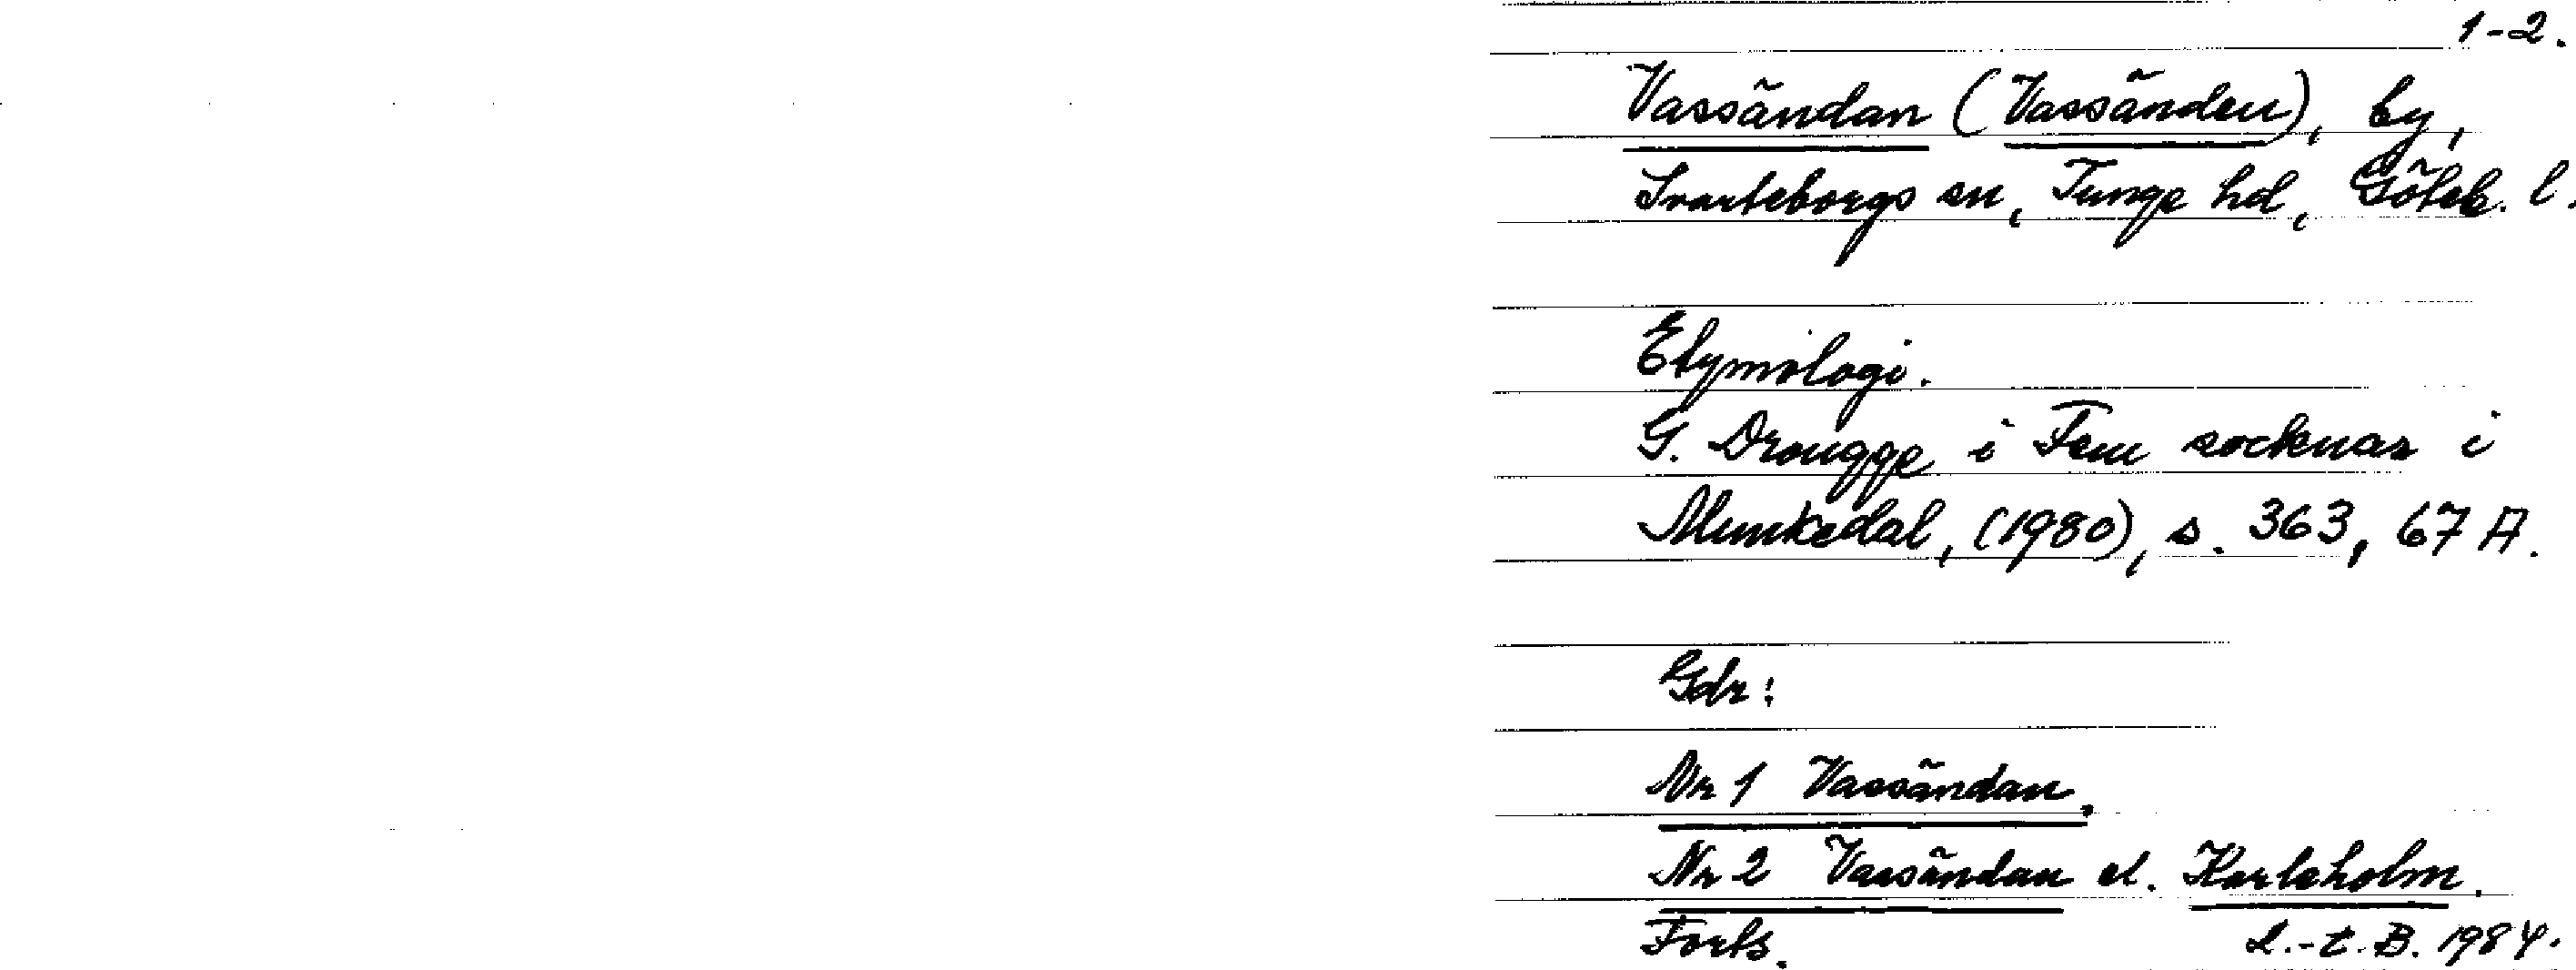 1-2.
Vassändan (Vassänden), by,
Svarteborgs sn, Tunge hd, Göteb. l.
Etymologi.
G. Drougge i Fem socknar i
Munkedal, (1980), s. 363, 67 A.
Gdr:
Nr 1 Vassändan.
Nr 2 Vassändan el. Karlsholm.
Forts.
L.-t. B. 1984.